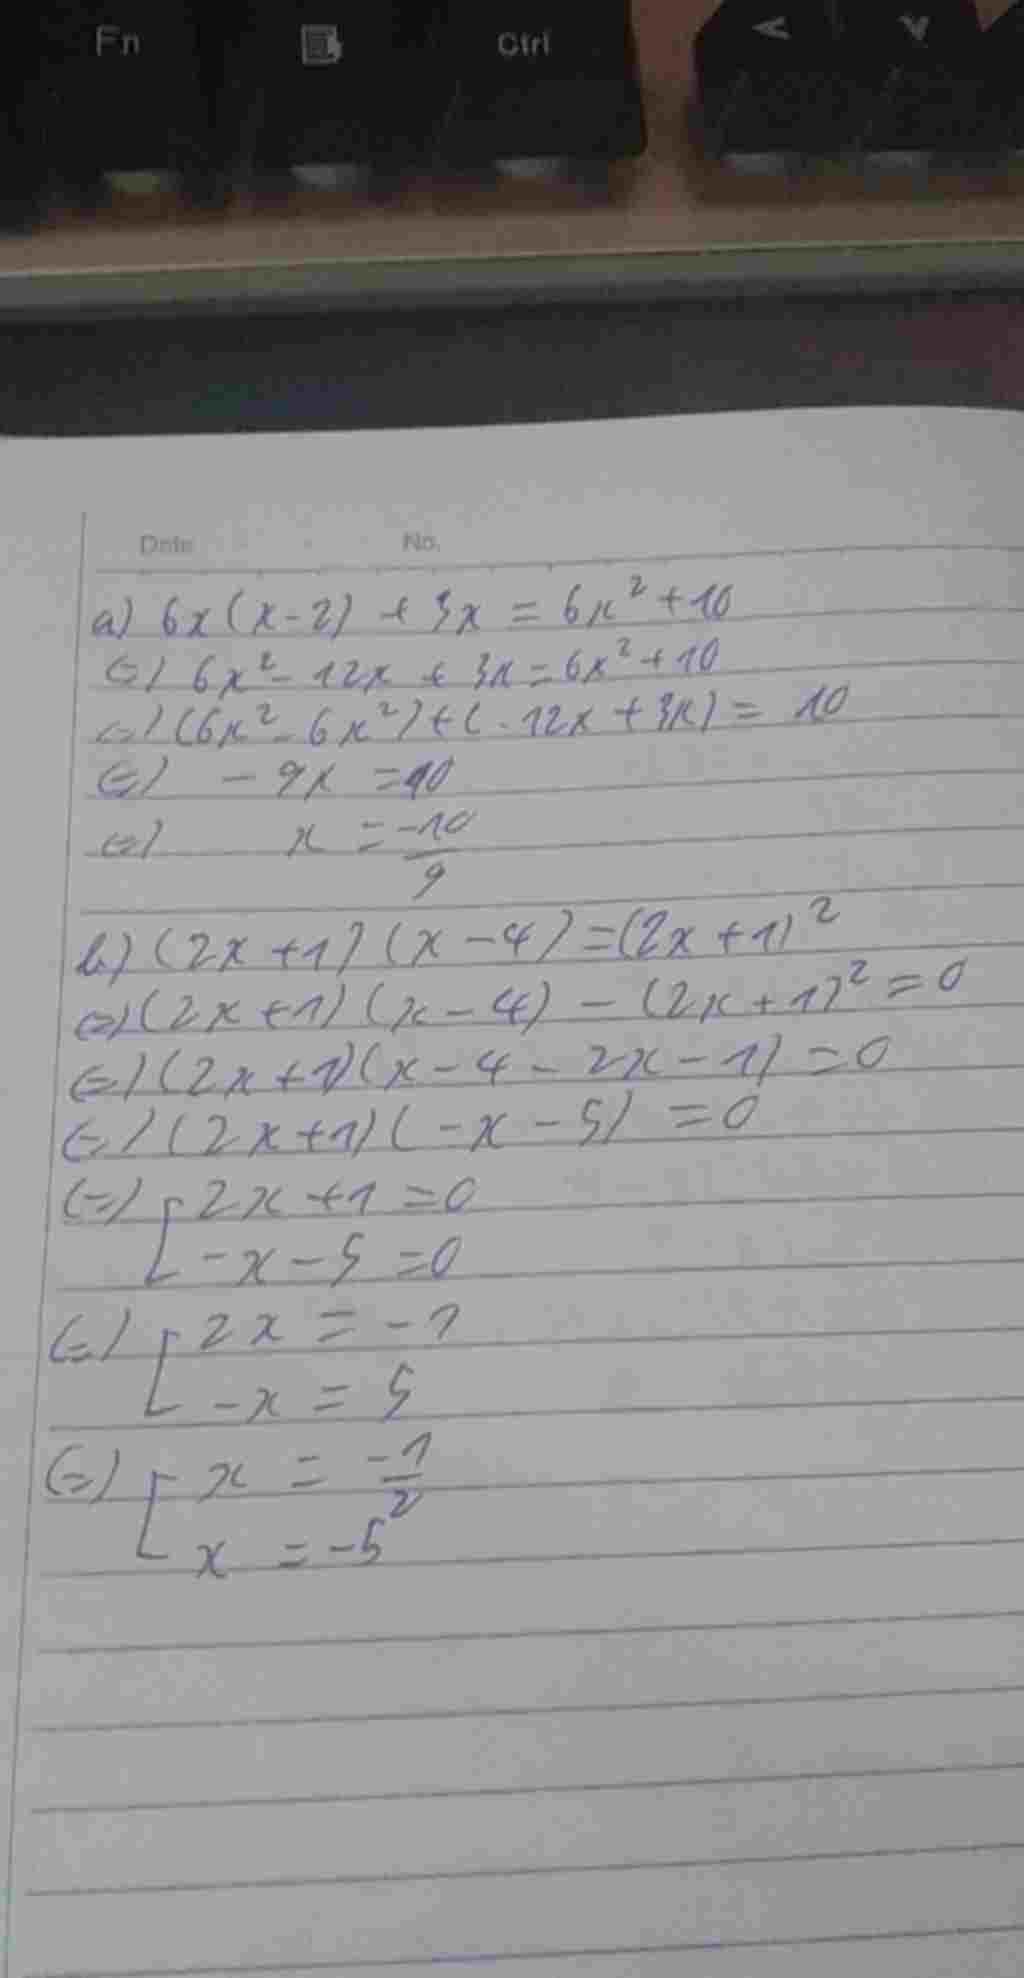 Fn Ctrl < v
Date No.
a) 6x(x-2) + 3x = 6x² + 10
(=) 6x² - 12x + 3x = 6x² + 10
(=) (6x² - 6x²) + (-12x + 3x) = 10
(=) - 9x = 10
(=) x = -10/9
b) (2x+1)(x-4) = (2x+1)²
(=) (2x+1)(x-4) - (2x+1)² = 0
(=) (2x+1)(x-4-2x-1) = 0
(=) (2x+1)(-x-5) = 0
(=) [ 2x+1 = 0
-x-5 = 0
(=) [ 2x = -1
-x = 5
(=) [ x = -1/2
x = -5